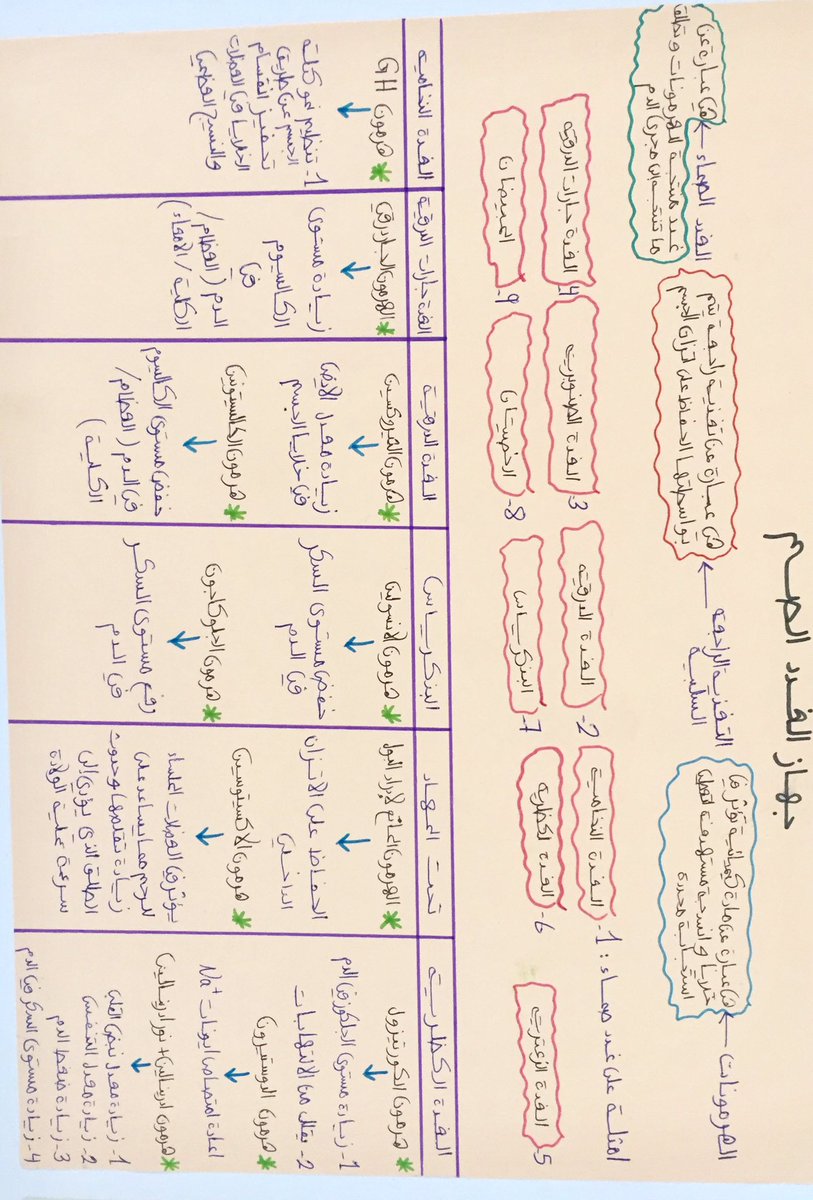 جهاز الغدد الصم
الهرمونات ←
هي عبارة عن مادة كيميائية تؤثر في
خلايا وانسجة مستهدفة لتعطي
استجابة محددة
التغذية الراجعة
السلبية ←
هي عبارة عن تغذية راجعة يتم
بواسطتها الحفاظ على اتزان الجسم
الغدد الصماء ←
هي عبارة عن
غدد منتجة للهرمونات وتطلق
ما تنتجه إلى مجرى الدم
امثلة على غدد صماء :
1- الغدة النخامية
2- الغدة الدرقية
3- الغدة الصنوبرية
4- الغدة جارات الدرقية
5- الغدة الزعترية
6- الغدة الكظرية
7- البنكرياس
8- الخصيتان
9- المبيضان
الغدة الكظرية
هرمون الكورتيزول
↓
1- زيادة مستوى الجلوكوز في الدم
2- يقلل من الالتهابات
هرمون الدوستيرون
↓
اعادة امتصاص ايونات Na+
هرمون ادرينالين + نورادرينالين
↓
1- زيادة معدل نبض القلب
2- زيادة معدل التنفس
3- زيادة ضغط الدم
4- زيادة مستوى السكر في الدم
تحت المهاد
الهرمون المانع لإدرار البول
↓
الحفاظ على الاتزان
الداخلي
هرمون الاكسيتوسين
↓
يؤثر في العضلات الملساء
للرحم مما يساعد على
زيادة تقلصها وحدوث
الطلق الذي يؤدي إلى
سرعة عملية الولادة
البنكرياس
هرمون الانسولين
↓
خفض مستوى السكر
في الدم
هرمون الجلوكاجون
↓
رفع مستوى السكر
في الدم
الغدة الدرقية
هرمون الثيروكسين
↓
زيادة معدل الأيض
في خلايا الجسم
هرمون الكالسيتونين
↓
خفض مستوى الكالسيوم
في الدم ( العظام /
الكلية )
الغدة جارات الدرقية
الهرمون الجاردرقي
↓
زيادة مستوى
الكالسيوم
في
الدم ( العظام /
الكلية / الأمعاء )
الغدة النخامية
هرمون GH
↓
1- تنظيم نمو كتلة
الجسم عن طريق
تحفيز انقسام
الخلايا في العضلات
والنسيج العظمي